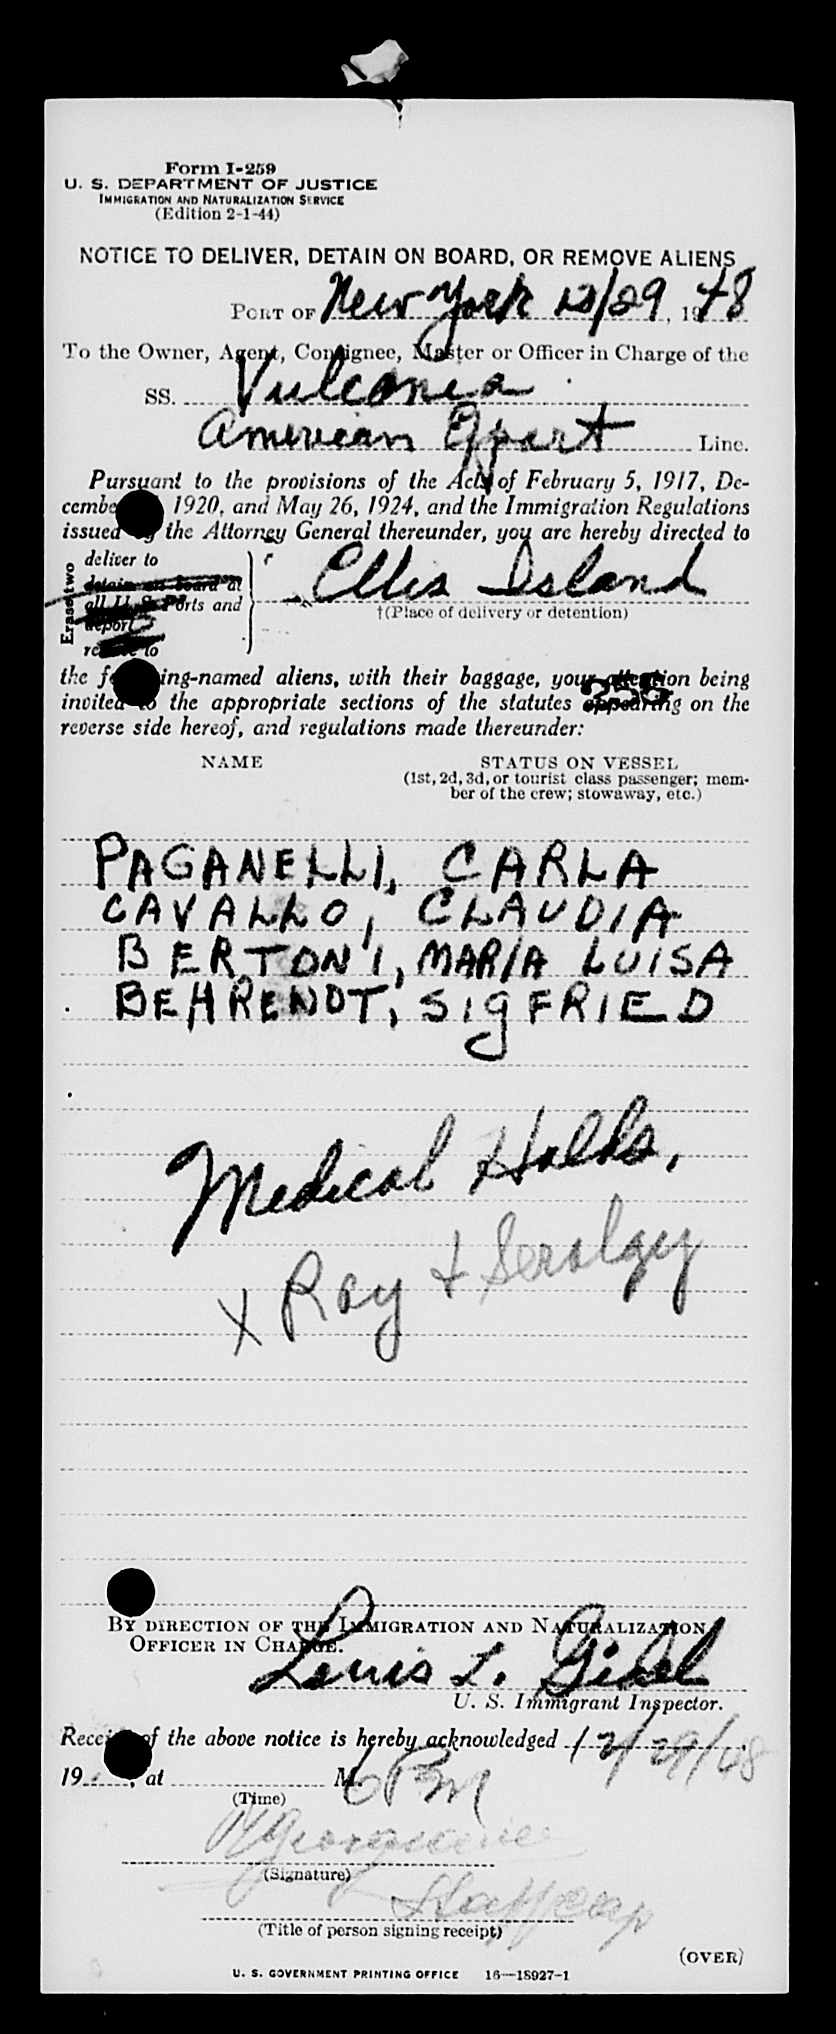 Form I-259
U. S. DEPARTMENT OF JUSTICE
IMMIGRATION AND NATURALIZATION SERVICE
(Edition 2-1-44)
NOTICE TO DELIVER, DETAIN ON BOARD, OR REMOVE ALIENS
PORT OF New York 12/29, 1948
To the Owner, Agent, Consignee, Master or Officer in Charge of the
SS. Vulcania
American Export Line.
Pursuant to the provisions of the Acts of February 5, 1917, De-
cembe 1920, and May 26, 1924, and the Immigration Regulations
issued by the Attorney General thereunder, you are hereby directed to
Erase two
deliver to
detain on board at
all U. S. Ports and
deport
re to
Ellis Island
†(Place of delivery or detention)
the f ing-named aliens, with their baggage, your attention being
invited to the appropriate sections of the statutes appearing on the
255
reverse side hereof, and regulations made thereunder:
NAME STATUS ON VESSEL
(1st, 2d, 3d, or tourist class passenger; mem-
ber of the crew; stowaway, etc.)
PAGANELLI, CARLA
CAVALLO, CLAUDIA
BERTONI, MARIA LUISA
BEHRENDT, SIGFRIED
Medical Holds,
X Ray + Serolgy
BY DIRECTION OF THE IMMIGRATION AND NATURALIZATION
OFFICER IN CHARGE.
Louis L.
U. S. Immigrant Inspector.
Receipt of the above notice is hereby acknowledged 12/29/48
19 , at M. 6 PM
(Time)
(Signature)
Staff Cap
(Title of person signing receipt)
(OVER)
U. S. GOVERNMENT PRINTING OFFICE 16—18927-1